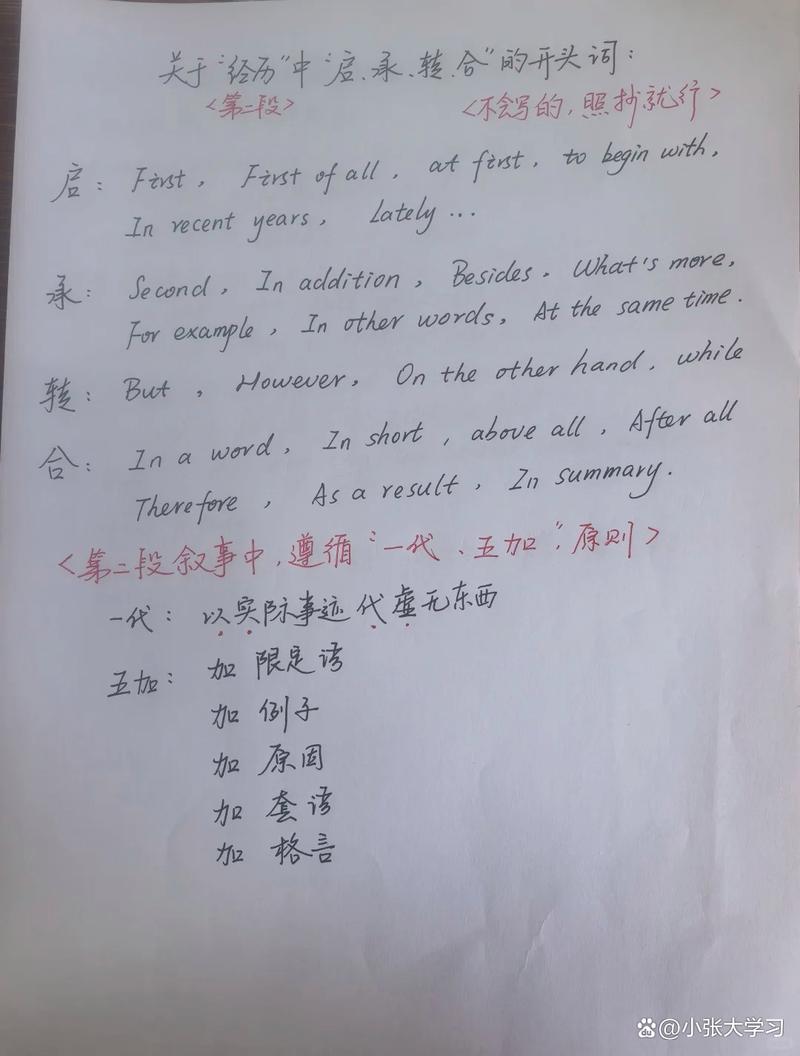 关于“经历”中“启、承、转、合”的开头词:
<第二段> <不会写的,照抄就行>
启: First, First of all, at first, to begin with,
In recent years, Lately...
承: Second, In addition, Besides, What's more,
For example, In other words, At the same time.
转: But, However, On the other hand, while
合: In a word, In short, above all, After all
Therefore, As a result, In summary.
<第二段叙事中,遵循“一代、五加”,原则>
一代: 以实际事迹代虚无东西
五加: 加 限定语
加 例子
加 原因
加 套语
加 格言
@小张大学习